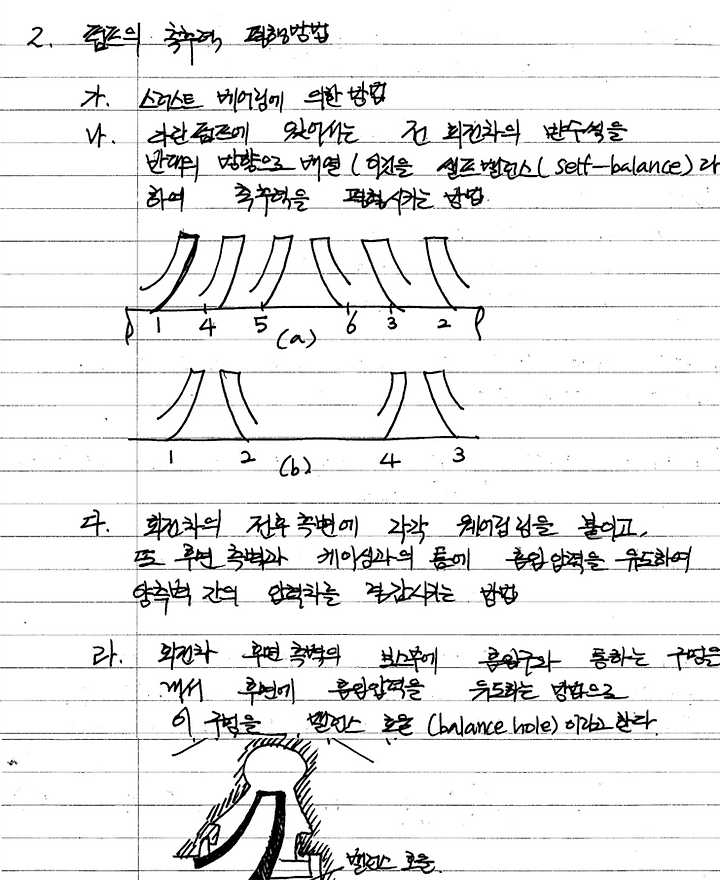 2. 펌프의 축추력 평형방법
가. 스러스트 베어링에 의한 방법
나. 다단펌프에 있어서는 전 회전차의 반수씩을
반대의 방향으로 배열 (이것을 셀프밸런스(self-balance)라
하여 축추력을 평형시키는 방법
1 4 5 6 3 2
(a)
1 2 4 3
(b)
다. 회전차의 전후측벽에 각각 웨어링링을 붙이고,
또 후면측벽과 케이싱과의 틈에 흡입압력을 유도하여
양측벽 간의 압력차를 경감시키는 방법
라. 회전차 후면측벽의 보스부에 흡입구와 통하는 구멍을
내서 후면에 흡입압력을 유도하는 방법으로
이 구멍을 밸런스 호울 (balance hole) 이라고 한다.
밸런스 호울